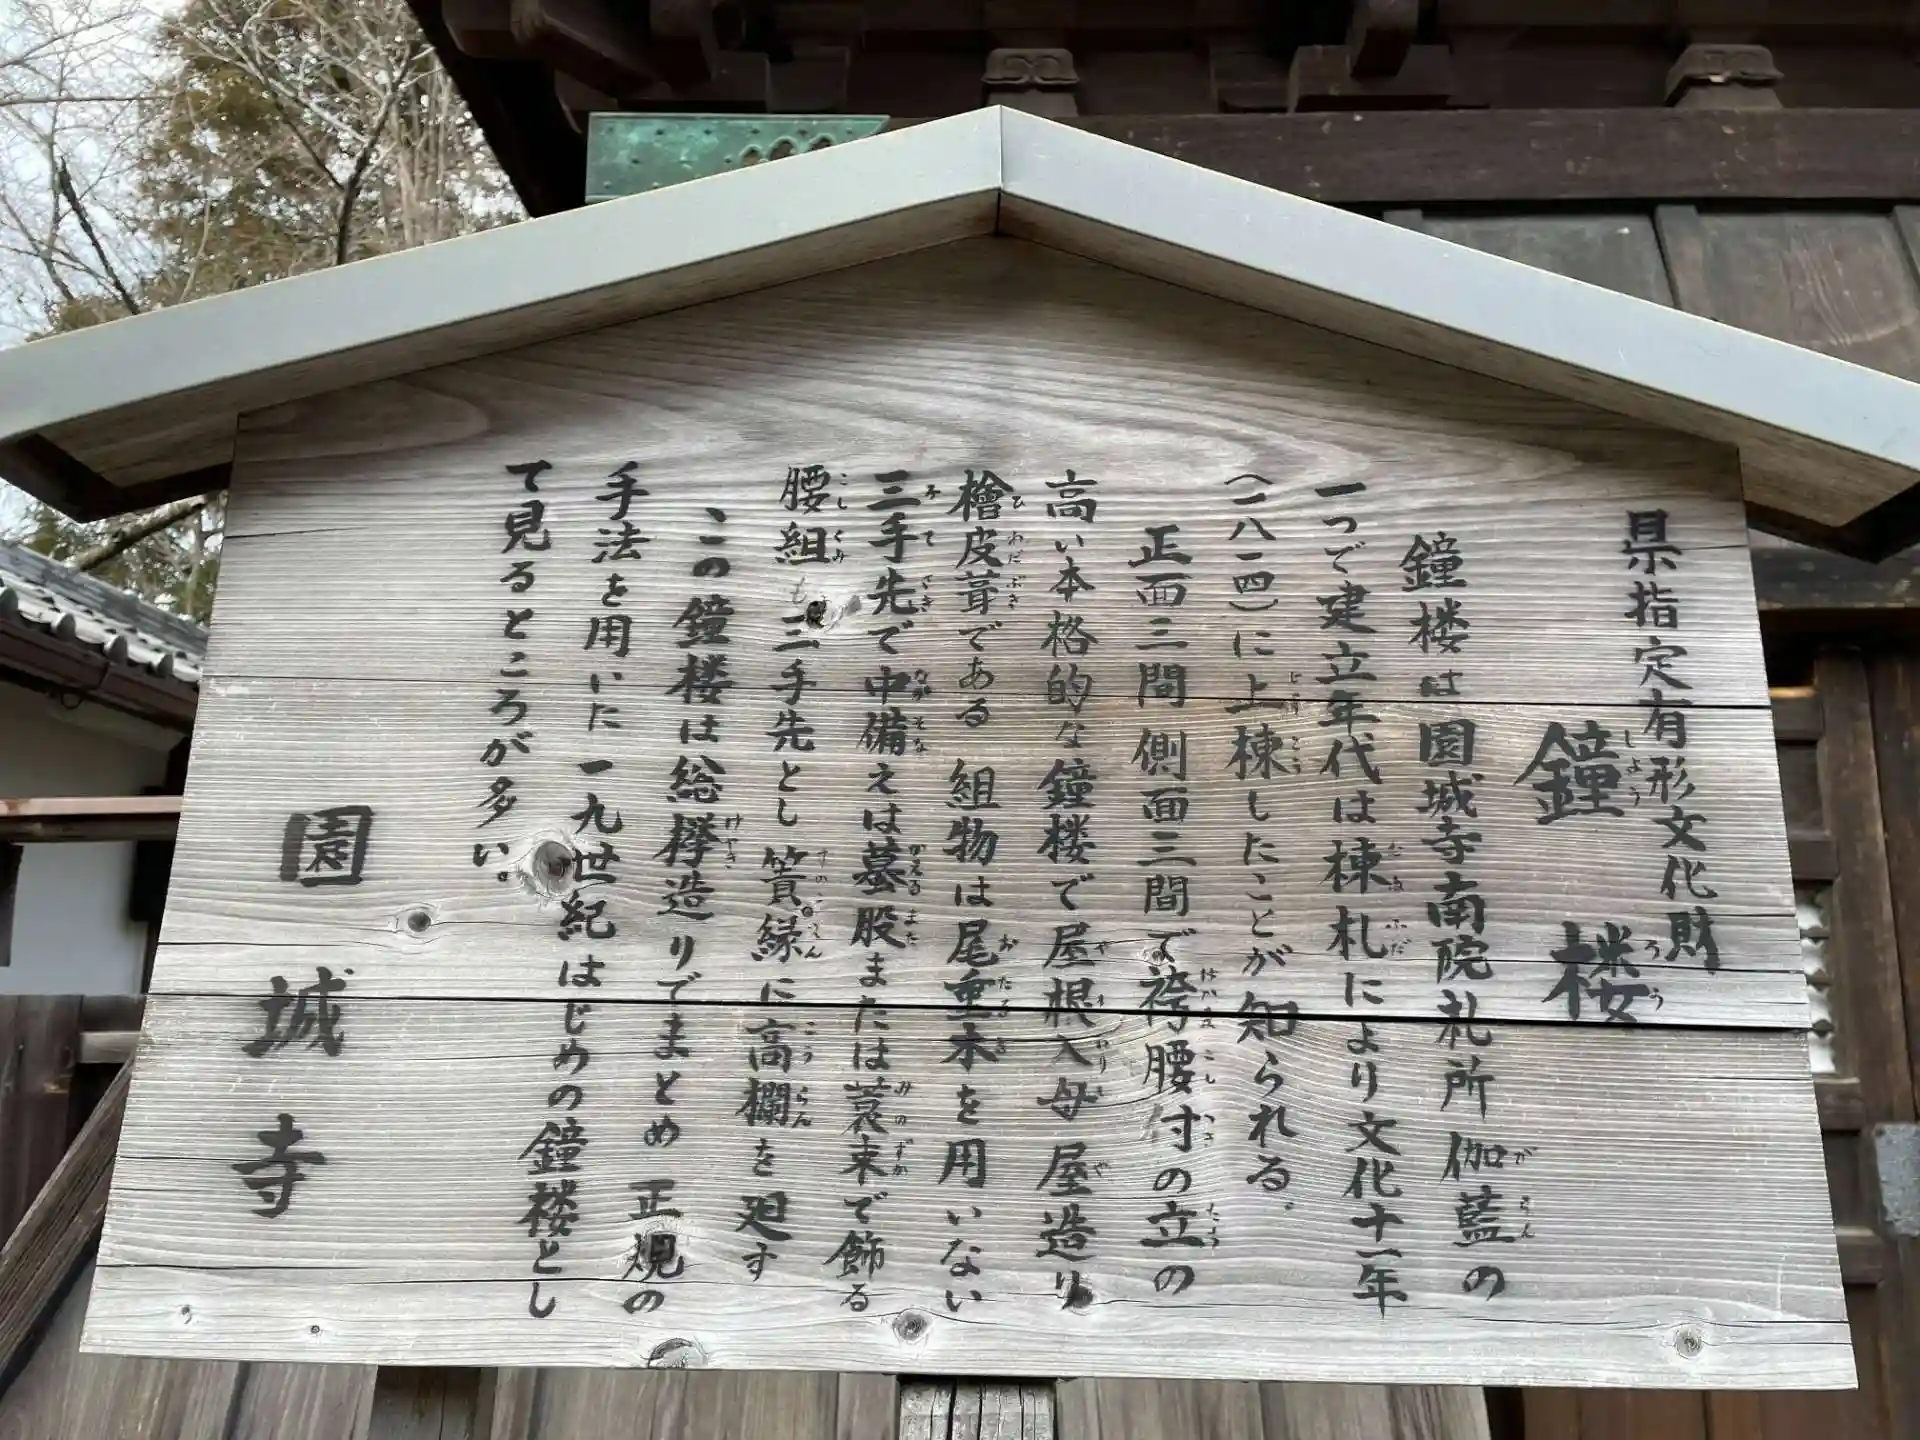 県指定有形文化財
鐘楼
鐘楼は園城寺南院札所伽藍の
一つで建立年代は棟札により文化十一年
(一八一四)に上棟したことが知られる。
正面三間 側面三間で袴腰付の立の
高い本格的な鐘楼で屋根入母屋造り
檜皮葺である 組物は尾垂木を用いない
三手先で中備えは蟇股または蓑束で飾る
腰組も三手先とし簀子縁に高欄を廻す
この鐘楼は総欅造りでまとめ 正規の
手法を用いた一九世紀はじめの鐘楼とし
て見るところが多い。
園城寺